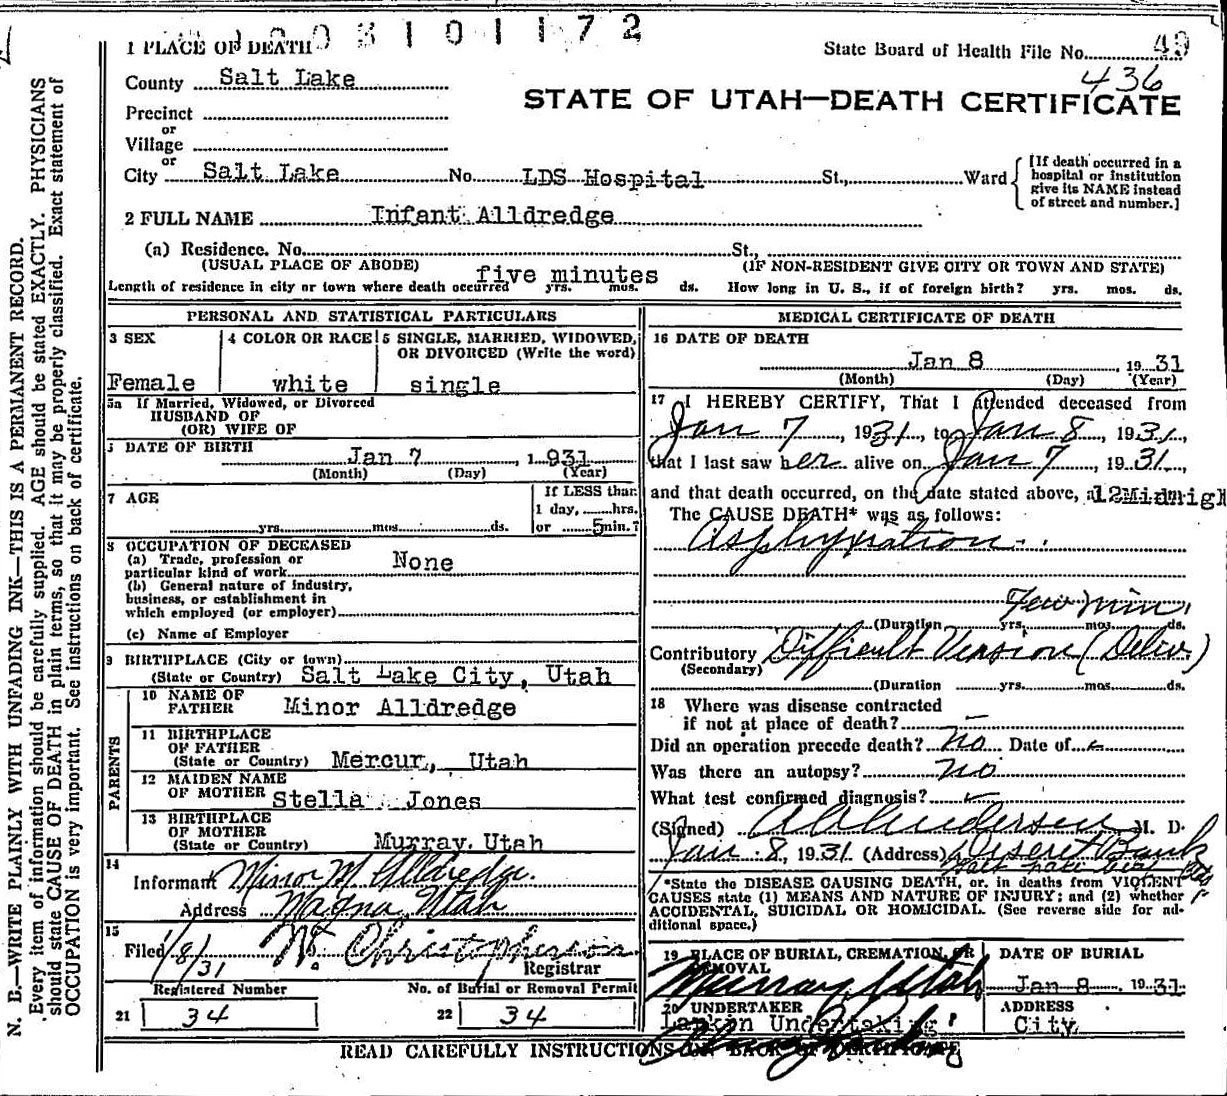 1 PLACE OF DEATH 0 0 3 1 0 1 1 7 2
State Board of Health File No. 49
436
County Salt Lake
STATE OF UTAH—DEATH CERTIFICATE
Precinct
or
Village
or
City Salt Lake No. LDS Hospital St., Ward
[If death occurred in a
hospital or institution
give its NAME instead
of street and number.]
2 FULL NAME Infant Alldredge
(a) Residence. No. St.,
(USUAL PLACE OF ABODE) (IF NON-RESIDENT GIVE CITY OR TOWN AND STATE)
five minutes
Length of residence in city or town where death occurred yrs. mos. ds. How long in U. S., if of foreign birth? yrs. mos. ds.
PERSONAL AND STATISTICAL PARTICULARS
3 SEX 4 COLOR OR RACE 5 SINGLE, MARRIED, WIDOWED,
OR DIVORCED (Write the word)
Female white single
5a If Married, Widowed, or Divorced
HUSBAND OF
(OR) WIFE OF
DATE OF BIRTH Jan 7, 1931
(Month) (Day) (Year)
7 AGE If LESS than
1 day, hrs.
yrs. mos. ds. or 5 min.?
8 OCCUPATION OF DECEASED
(a) Trade, profession or
particular kind of work None
(b) General nature of industry,
business, or establishment in
which employed (or employer)
(c) Name of Employer
9 BIRTHPLACE (City or town)
(State or Country) Salt Lake City, Utah
PARENTS
10 NAME OF
FATHER Minor Alldredge
11 BIRTHPLACE
OF FATHER
(State or Country) Mercur, Utah
12 MAIDEN NAME
OF MOTHER Stella Jones
13 BIRTHPLACE
OF MOTHER
(State or Country) Murray, Utah
14
Informant Minor M Alldredge.
Address Magna Utah
15
Filed 1/8/31 W. Christopherson
Registrar
Registered Number No. of Burial or Removal Permit
21 34 22 34
MEDICAL CERTIFICATE OF DEATH
16 DATE OF DEATH
Jan 8, 1931
(Month) (Day) (Year)
17 I HEREBY CERTIFY, That I attended deceased from
Jan 7, 1931, to Jan 8, 1931,
that I last saw her alive on Jan 7, 1931,
and that death occurred, on the date stated above, a 12Midnigh
The CAUSE DEATH* was as follows:
Asphyxiation
Few min.
(Duration yrs. mos. ds.
Contributory Difficult Version (Deliv.)
(Secondary)
(Duration yrs. mos. ds.
18 Where was disease contracted
if not at place of death? —
Did an operation precede death? no Date of
Was there an autopsy? no
What test confirmed diagnosis?
(Signed) Anderson M. D.
Jan 8, 1931 (Address) Deseret Bank
Salt Lake City
*State the DISEASE CAUSING DEATH, or, in deaths from VIOLENT
CAUSES state (1) MEANS AND NATURE OF INJURY; and (2) whether
ACCIDENTAL, SUICIDAL OR HOMICIDAL. (See reverse side for ad-
ditional space.)
19 PLACE OF BURIAL, CREMATION, OR
REMOVAL
Murray Utah
DATE OF BURIAL
Jan 8, 1931
20 UNDERTAKER
Larkin Undertaking
ADDRESS
City
READ CAREFULLY INSTRUCTIONS ON BACK OF CERTIFICATE
N. B.—WRITE PLAINLY WITH UNFADING INK—THIS IS A PERMANENT RECORD.
Every item of information should be carefully supplied. AGE should be stated EXACTLY. PHYSICIANS
should state CAUSE OF DEATH in plain terms, so that it may be properly classified. Exact statement of
OCCUPATION is very important. See instructions on back of certificate.